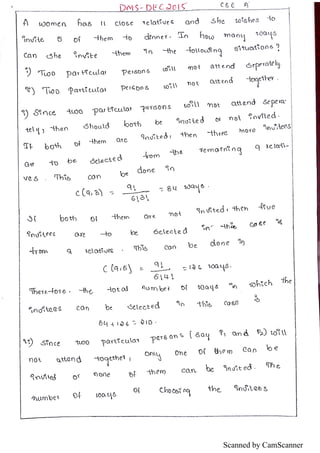 DMS-DEC2015 CSE A
A women has 11 close relatives and she wishes to
invite 5 of them to dinner. In how many ways
can she invite them in the following situations?
i) Two particular persons will not attend seperately
ii) Two particular persons will not attend together.
i) Since two particular persons will not attend sepera-
tely, then should both be invited or not invited.
If both of them are invited, then three more invitees
are to be selected from the remaining 9 relati-
ves. This can be done in
C(9,3) = 9! / 6!3! = 84 ways.
If both of them are not invited, then five
invitees are to be selected in this case is
from 9 relatives. This can be done in
C(9,5) = 9! / 5!4! = 126 ways.
Therefore, the total number of ways in which the
invitees can be selected in this case is
84 + 126 = 210.
ii) Since two particular persons (say P1 and P2) will
not attend together, only one of them can be
invited or none of them can be invited. The
number of ways of choosing the invitees
Scanned by CamScanner